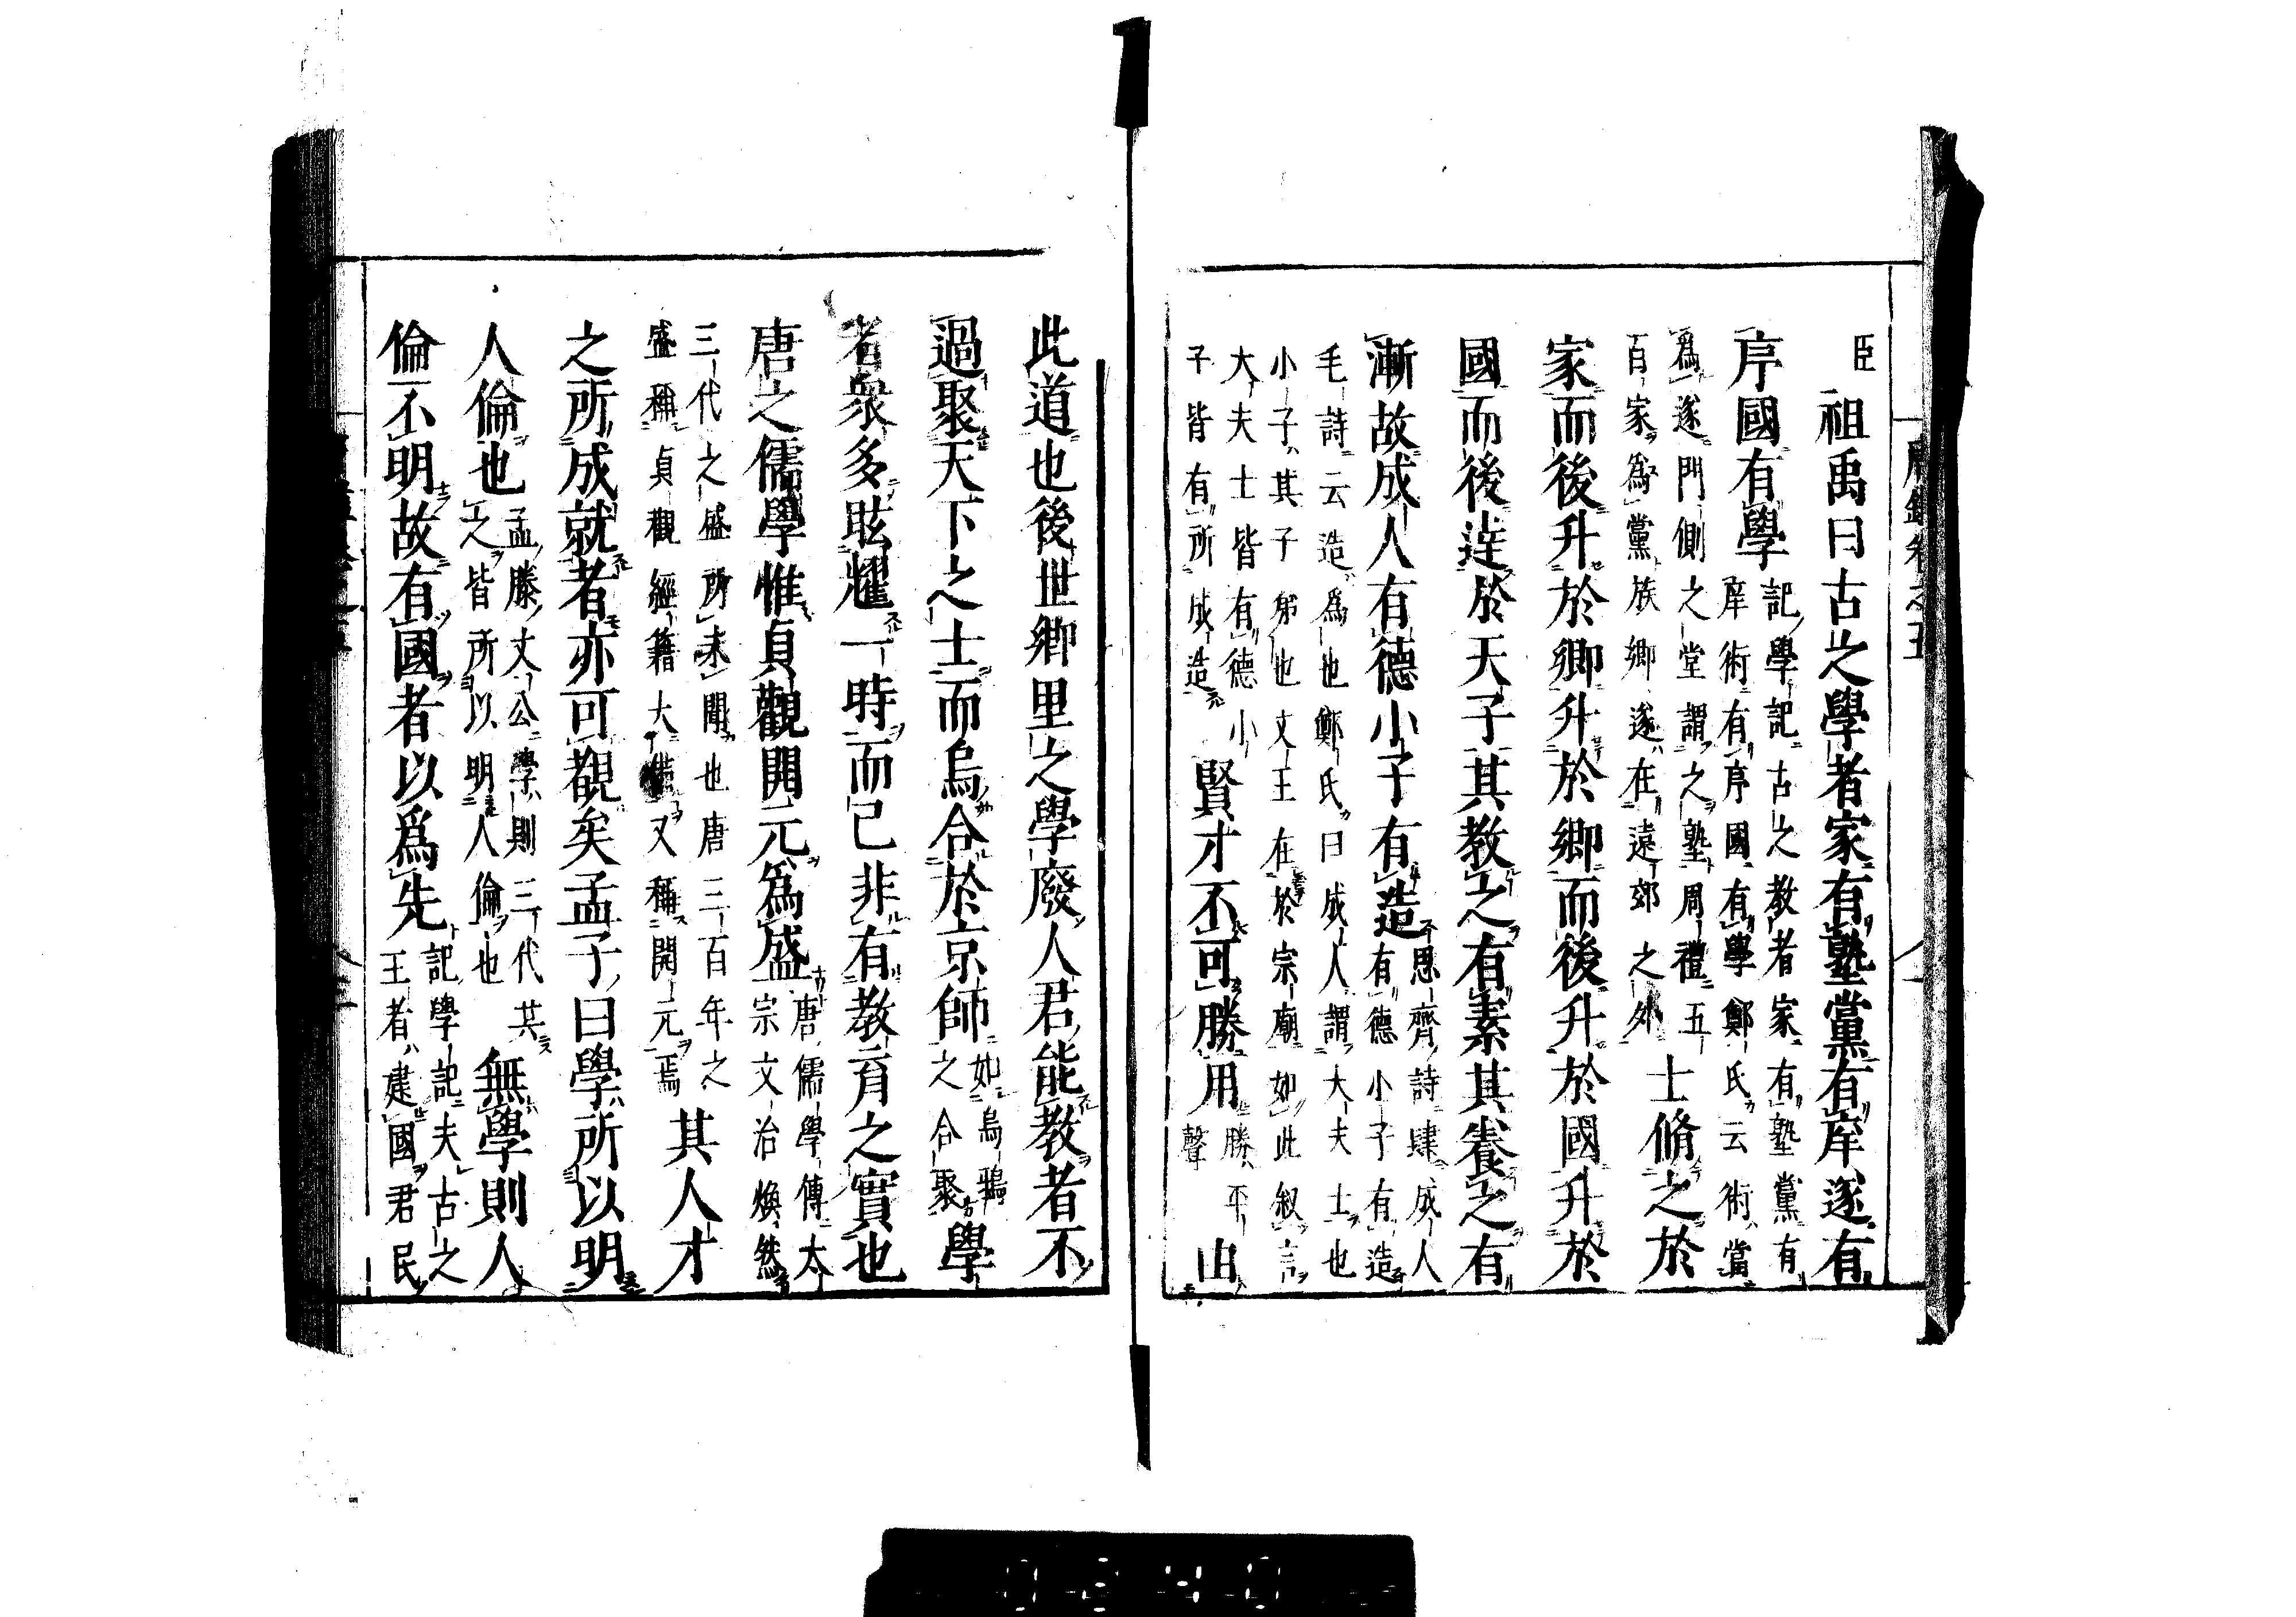 臣祖禹曰古之學者家有塾黨有庠遂有
序國有學記學記古之教者家有塾黨有
庠術有序國有學鄭氏云術當
爲遂門側之堂謂之塾周禮五
百家爲黨族鄉遂在遠郊之外士脩之於
家而後升於鄉升於鄉而後升於國升於
國而後達於天子其教之有素其養之有
漸故成人有德小子有造思齊詩肆成人
有德小子有造
毛詩云造爲也鄭氏曰成人謂大夫士也
小子其子弟也文王在於宗廟如此叙言
大夫士皆有德小
子皆有所成造賢才不可勝用勝平
聲由
此道也後世鄉里之學廢人君能教者不
過聚天下之士而烏合於京師如烏鴉
之合聚學
者衆多眩耀一時而已非有教育之實也
唐之儒學惟貞觀開元爲盛唐儒學傳太
宗文治煥然
三代之盛所未聞也唐三百年之
盛稱貞觀經籍大備又稱開元焉其人才
之所成就者亦可觀矣孟子曰學所以明
人倫也孟滕文公學則三代共
之皆所以明人倫也無學則人
倫不明故有國者以爲先記學記夫古之
王者建國君民